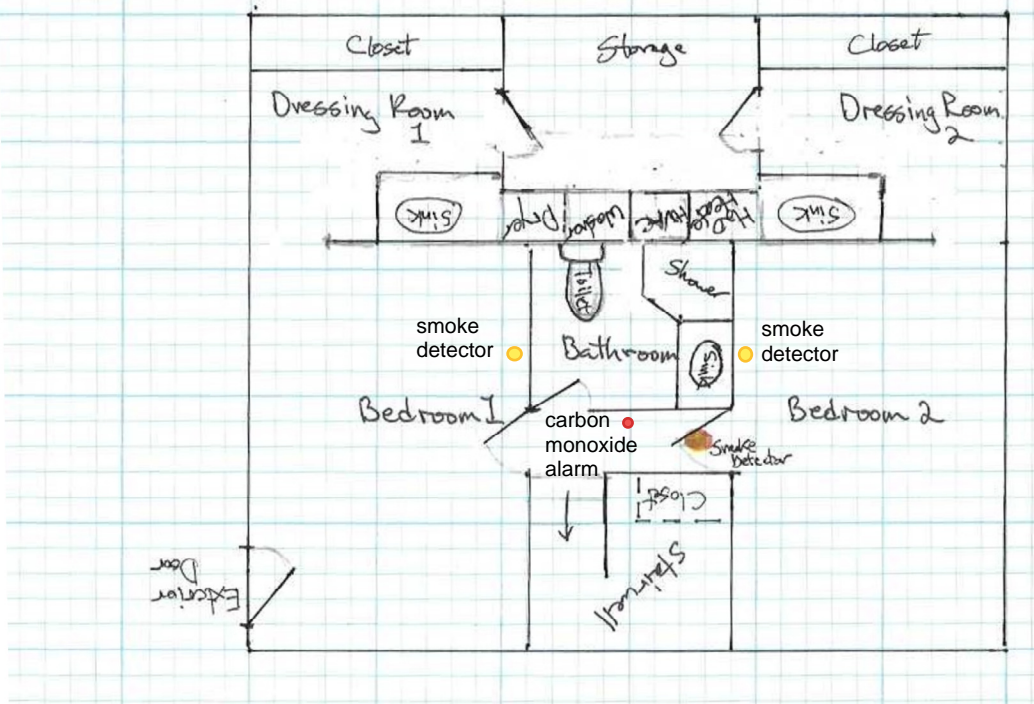 Closet
Storage
Closet
Dressing Room
1
Dressing Room
2
Sink
Dryer
Washer
Sink
Toilet
Shower
smoke
detector
Bathroom
Sink
smoke
detector
Bedroom 1
carbon
monoxide
alarm
Bedroom 2
Smoke
Detector
Closet
Stairwell
Exterior
Door